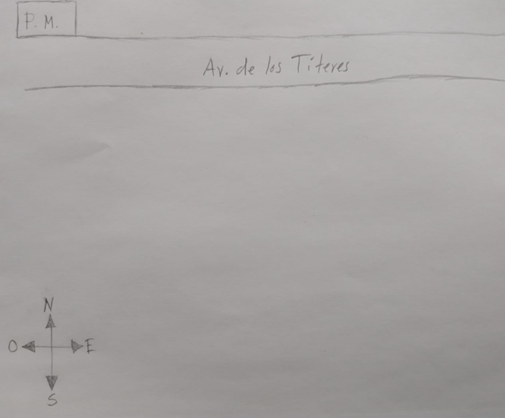 P.M.
Av. de los Títeres
N
O E
S